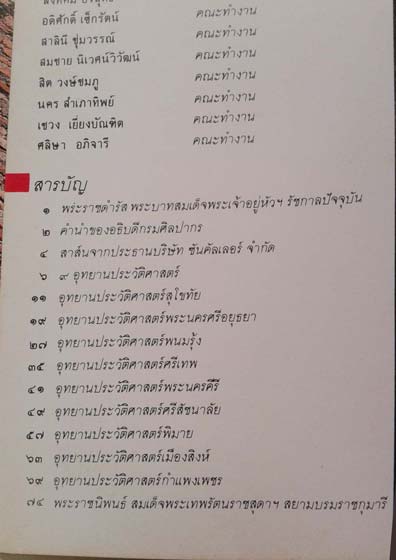 อดิศักดิ์ เซ็กรัตน์ คณะทำงาน
สาลินี ชุ่มวรรณ์ คณะทำงาน
สมชาย นิเวศน์วิวัฒน์ คณะทำงาน
สิต วงษ์ชมภู คณะทำงาน
นคร สำเภาทิพย์ คณะทำงาน
เชวง เยี่ยงบัณฑิต คณะทำงาน
ศลิษา อภิจารี คณะทำงาน
สารบัญ
๑ พระราชดำรัส พระบาทสมเด็จพระเจ้าอยู่หัวฯ รัชกาลปัจจุบัน
๒ คำนำของอธิบดีกรมศิลปากร
๔ สาส์นจากประธานบริษัท ซันคัลเลอร์ จำกัด
๖ ๙ อุทยานประวัติศาสตร์
๑๑ อุทยานประวัติศาสตร์สุโขทัย
๑๙ อุทยานประวัติศาสตร์พระนครศรีอยุธยา
๒๗ อุทยานประวัติศาสตร์พนมรุ้ง
๓๕ อุทยานประวัติศาสตร์ศรีเทพ
๔๑ อุทยานประวัติศาสตร์พระนครคีรี
๔๙ อุทยานประวัติศาสตร์ศรีสัชนาลัย
๕๗ อุทยานประวัติศาสตร์พิมาย
๖๓ อุทยานประวัติศาสตร์เมืองสิงห์
๖๙ อุทยานประวัติศาสตร์กำแพงเพชร
๗๔ พระราชนิพนธ์ สมเด็จพระเทพรัตนราชสุดาฯ สยามบรมราชกุมารี